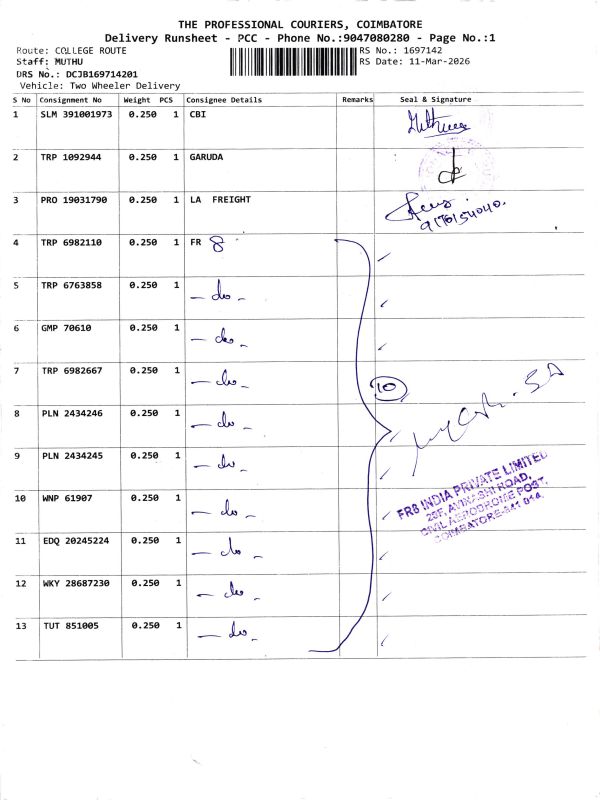 THE PROFESSIONAL COURIERS, COIMBATORE
Delivery Runsheet - PCC - Phone No.:9047080280 - Page No.:1
Route: COLLEGE ROUTE RS No.: 1697142
Staff: MUTHU RS Date: 11-Mar-2026
DRS No.: DCJB169714201
Vehicle: Two Wheeler Delivery
S No Consignment No Weight PCS Consignee Details Remarks Seal & Signature
1 SLM 391001973 0.250 1 CBI
2 TRP 1092944 0.250 1 GARUDA
3 PRO 19031790 0.250 1 LA FREIGHT
9176154040.
4 TRP 6982110 0.250 1 FR 8
5 TRP 6763858 0.250 1 - do -
6 GMP 70610 0.250 1 - do -
7 TRP 6982667 0.250 1 - do -
10
8 PLN 2434246 0.250 1 - do -
9 PLN 2434245 0.250 1 - do -
FR8 INDIA PRIVATE LIMITED
25F, AVINASHI ROAD,
CIVIL AERODROME POST,
COIMBATORE-641 014.
10 WNP 61907 0.250 1 - do -
11 EDQ 20245224 0.250 1 - do -
12 WKY 28687230 0.250 1 - do -
13 TUT 851005 0.250 1 - do -